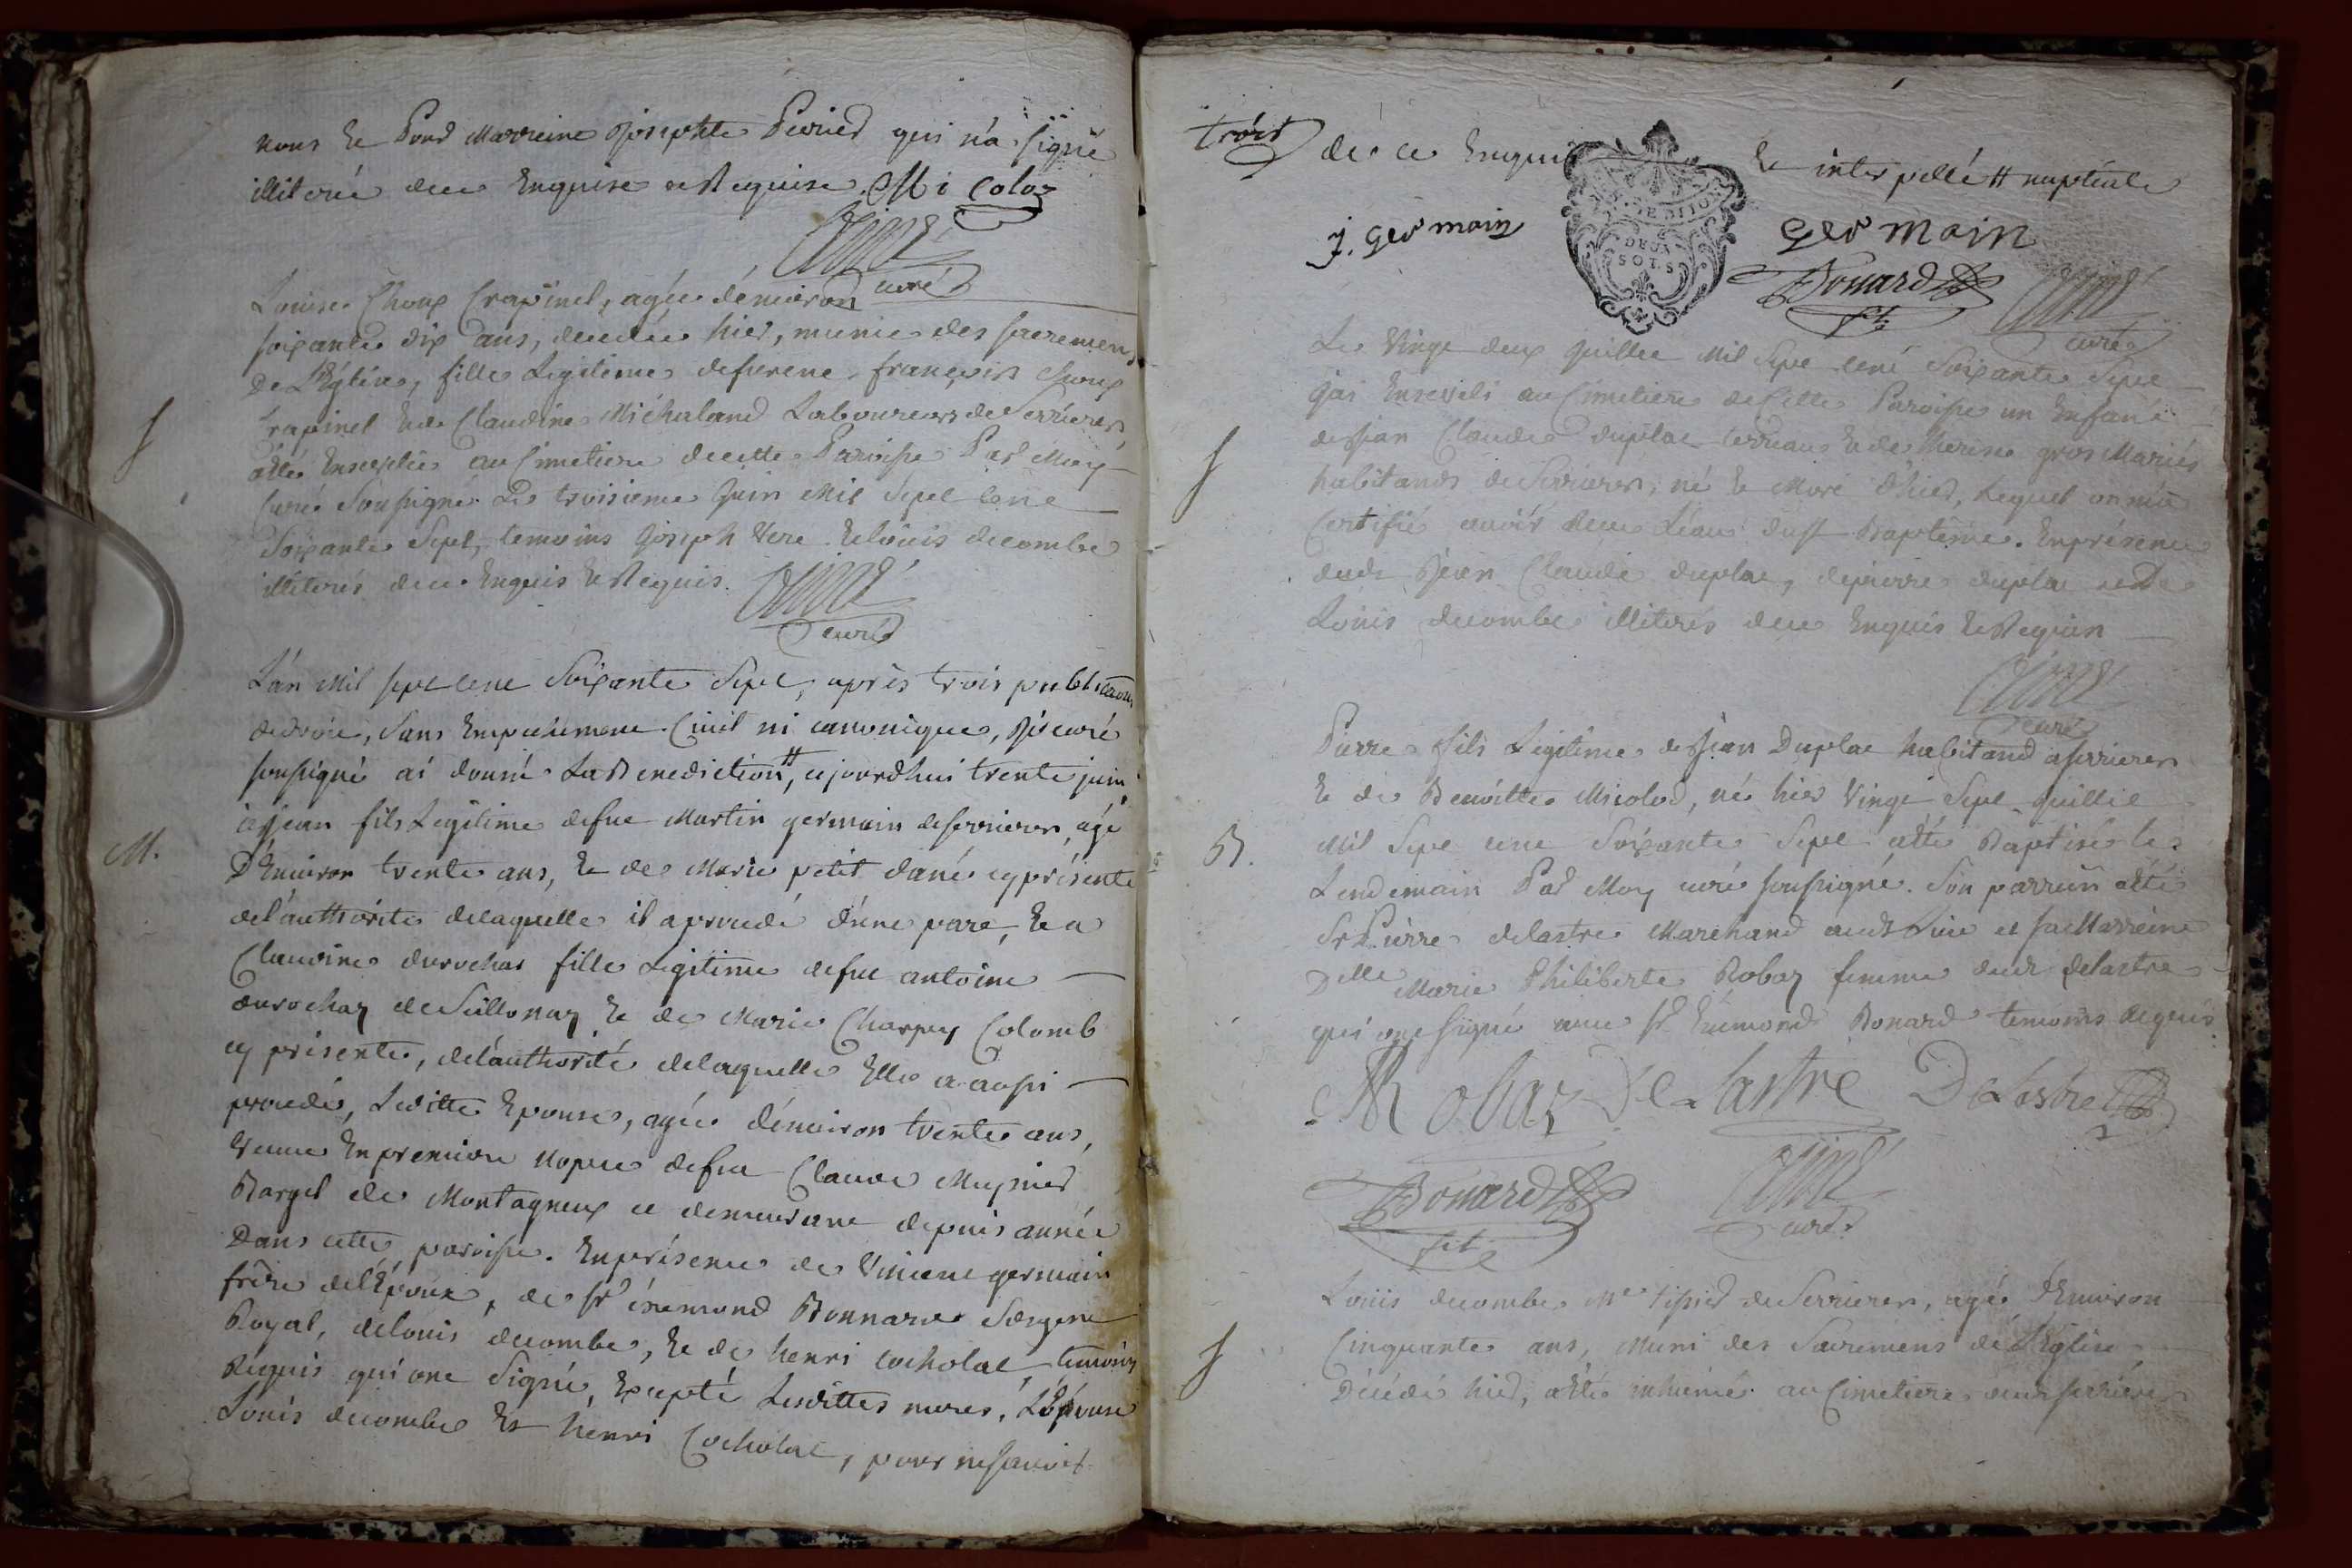 nous et Pour Marreine Josephte Perrier qui n'a signé
illiterée dece Enquise et Requise. Mi Colo
curé
Louise Choux Crapinel, agée dénviron
soixante dix ans, decedée hier, munie des sacremens
De L'Eglise, fille Legitime defeu françois Choux
Crapinel et de Claudine Michaland Laboureurs de Serrieres,
S
a été Ensevelie au Cimetiere de cette Paroisse Par Moy
Curé Soussigné Le troisieme Juin Mil Sept Cent
Soixante Sept, temoins Joseph Vere et louis decombe
illiterés dece Enquis et Requis.
curé
L'án Mil sept cent Soixante Sept, après trois publications
de droit, Sans Empechement Civil ni canonique, Je curé
soussigné ai donné La Benediction #, cejourdhui trente juin
M.
à Jean fils Legitime de feu Martin germain de serrieres, agé
D'Environ trente ans, et de Marie petit dané cy présente
de l'authorité de laquelle il a procedé d'une part, et a
Claudine durochat fille Legitime de feu antoine
durochaz de Sillonaz et de Marie Charpy Colomb
cy présente, de l'authorité de laquelle Elle a aussi
procedé, Laditte Epouse, agée dénviron trente ans,
Veuve En premiere Nopce de feu Claude Musnier
Barget de Montagneux et demeurant depuis année
Dans cette paroisse. En présence de Vincent germain
frère de l'Epoux, de sr érémond Bonnard Sergent
Royal, de louis decombe, et de henri Cocholat, temoins
Requis qui ont Signé, Excepté Lesdittes meres, L'Epouse
Louis decombe Et henri Cocholat, pour ne savoir
trois
de ce Enquis et interpellé # nuptiale
DE DIJON
DEUX
SOLS
J. Germain
Germain
Bonard
curé
Le Vingt deux Juillet Mil Sept Cent Soixante Sept
J'ai Enseveli au Cimetiere de Cette Paroisse un Enfant
S
de Jean Claude duplat terreau et de therese gros Mariés
habitands de Serrieres, né et Mort d'hier, Lequel on m'a
Certifié avoir receu L'eau du St Baptême. En présence
dudt Jean Claude duplat, de pierre duplat et De
Louis decombe illiterés dece Enquis et Requis
curé
Pierre fils Légitime de Jean Duplat habitand a serrieres
et de Benoitte Micolod, né hier Vingt Sept Juillet
B.
Mil Sept cent Soixante Sept a été Baptisé le
Lendemain Par Moy curé soussigné. Son parrain a été
Sr Pierre delastre Marchand audt Lieu et sa Marreine
Delle Marie Philiberte Robaz femme dudt delastre
qui ont signé avec sr Erémond Bonard temoins Requis
M Robaz Delastre Delastre
Bonard
curé
Louis decombe Me tissier de Serrieres, agé d'Environ
S
Cinquante ans, Muni des Sacremens de L'Eglise
Décédé hier, a été inhumé au Cimetiere dudt serrieres